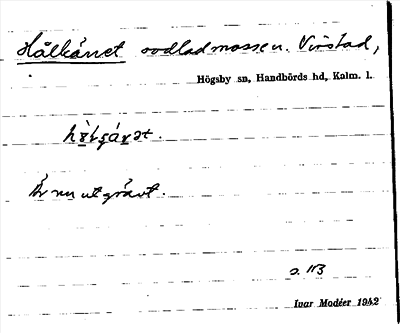 Hålkärret odlad mosse u. Virstad,
Högsby sn, Handbörds hd, Kalm. l.
Är nu utgrävt.
s. 113
Ivar Modéer 1942